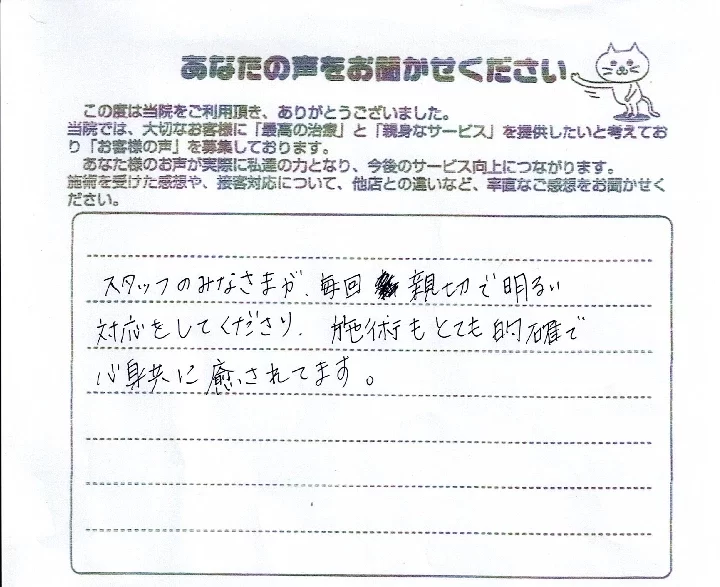 あなたの声をお聞かせください
この度は当院をご利用頂き、ありがとうございました。
当院では、大切なお客様に「最高の治療」と「親身なサービス」を提供したいと考えてお
り「お客様の声」を募集しております。
あなた様のお声が実際に私達の力となり、今後のサービス向上につながります。
施術を受けた感想や、接客対応について、他店との違いなど、率直なご感想をお聞かせく
ださい。
スタッフのみなさまが、毎回 親切で明るい
対応をしてくださり、施術もとても的確で
心身共に癒されてます。